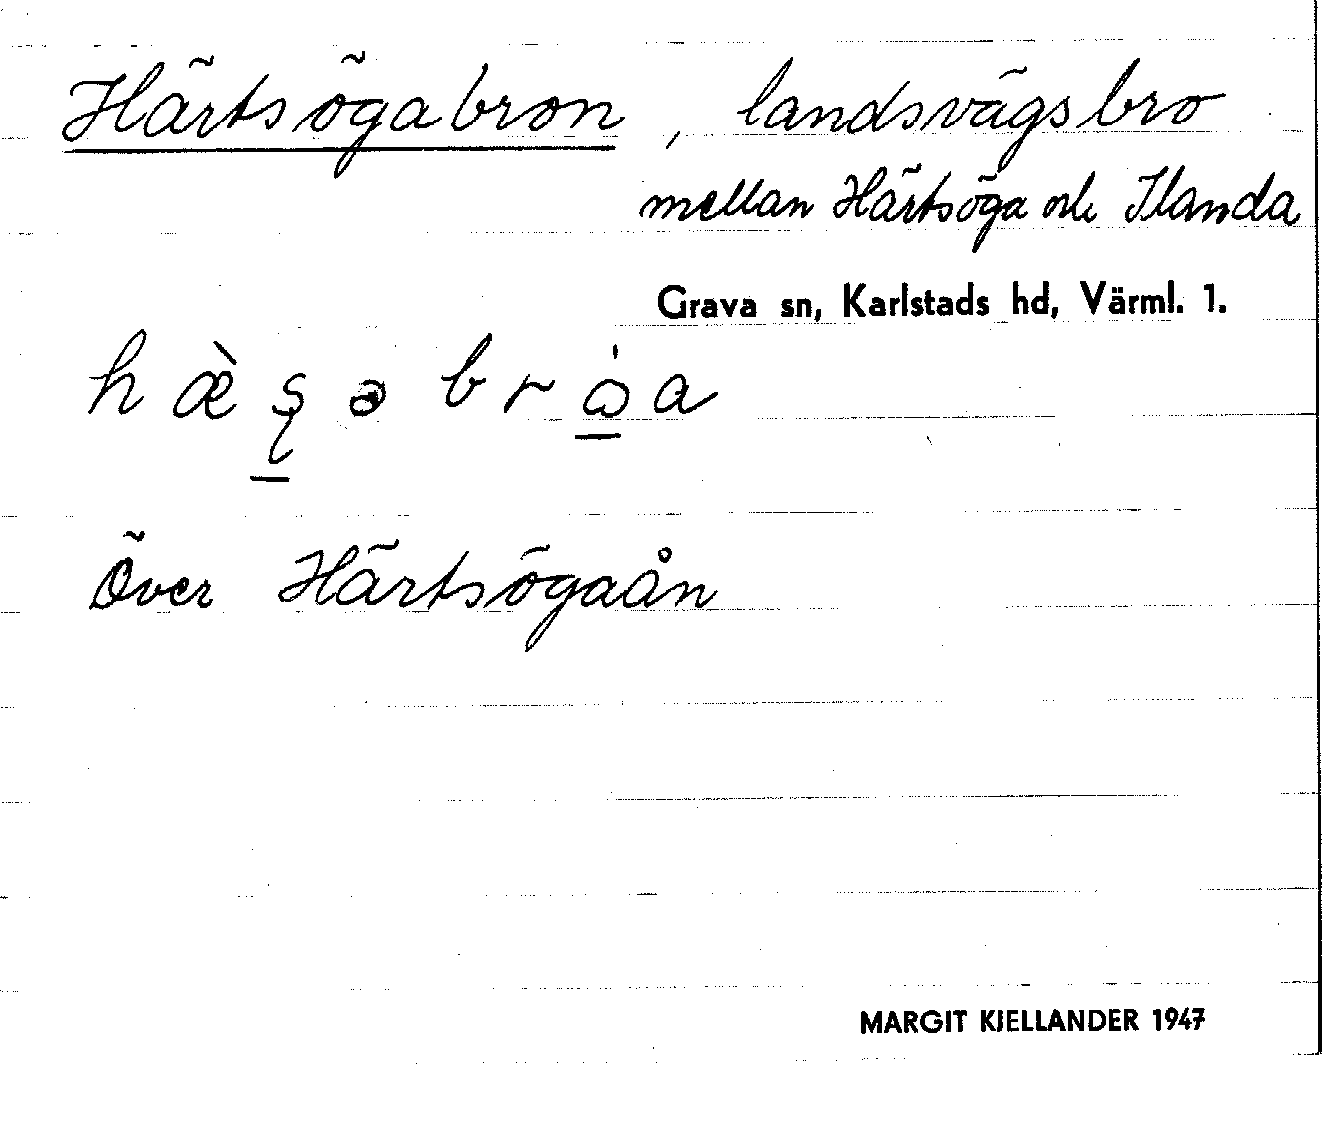 Härtsögabron, landsvägsbro
mellan Härtsöga och Ilanda
Grava sn, Karlstads hd, Värml. 1.
Över Härtsögaån
MARGIT KJELLANDER 1947